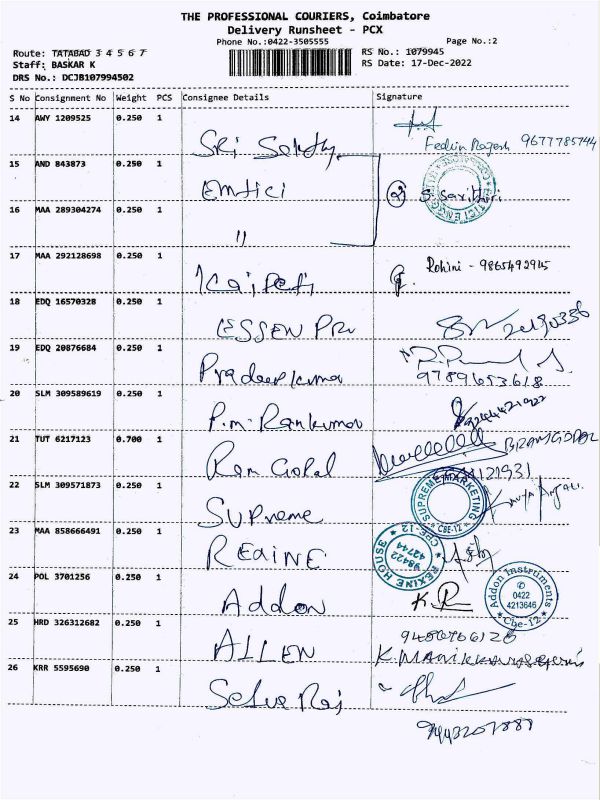 THE PROFESSIONAL COURIERS, Coimbatore
Delivery Runsheet - PCX
Phone No.:0422-3505555 Page No.:2
Route: TATABAD 3 4 5 6 7 RS No.: 1079945
Staff: BASKAR K RS Date: 17-Dec-2022
DRS No.: DCJB107994502
S No Consignment No Weight PCS Consignee Details Signature
14 AWY 1209525 0.250 1
9677785744
15 AND 843873 0.250 1 Emtici
16 MAA 289304274 0.250 1 "
17 MAA 292128698 0.250 1 Rohini - 9865492915
18 EDQ 16570328 0.250 1 ESSEN
19 EDQ 20876684 0.250 1 Pradeep Kumar
9789653618
20 SLM 309589619 0.250 1 P.m. Ramkumar
21 TUT 6217123 0.700 1 Ram Gopal
22 SLM 309571873 0.250 1 Supreme
SUPREME MARKETING
CBE-12
23 MAA 858666491 0.250 1 REXINE
REXINE HOUSE
CBE-12
98422
42744
24 POL 3701256 0.250 1 Addon
Addon Instruments
0422
4213646
Cbe-12
25 HRD 326312682 0.250 1 ALLEN
26 KRR 5595690 0.250 1 Selva Raj